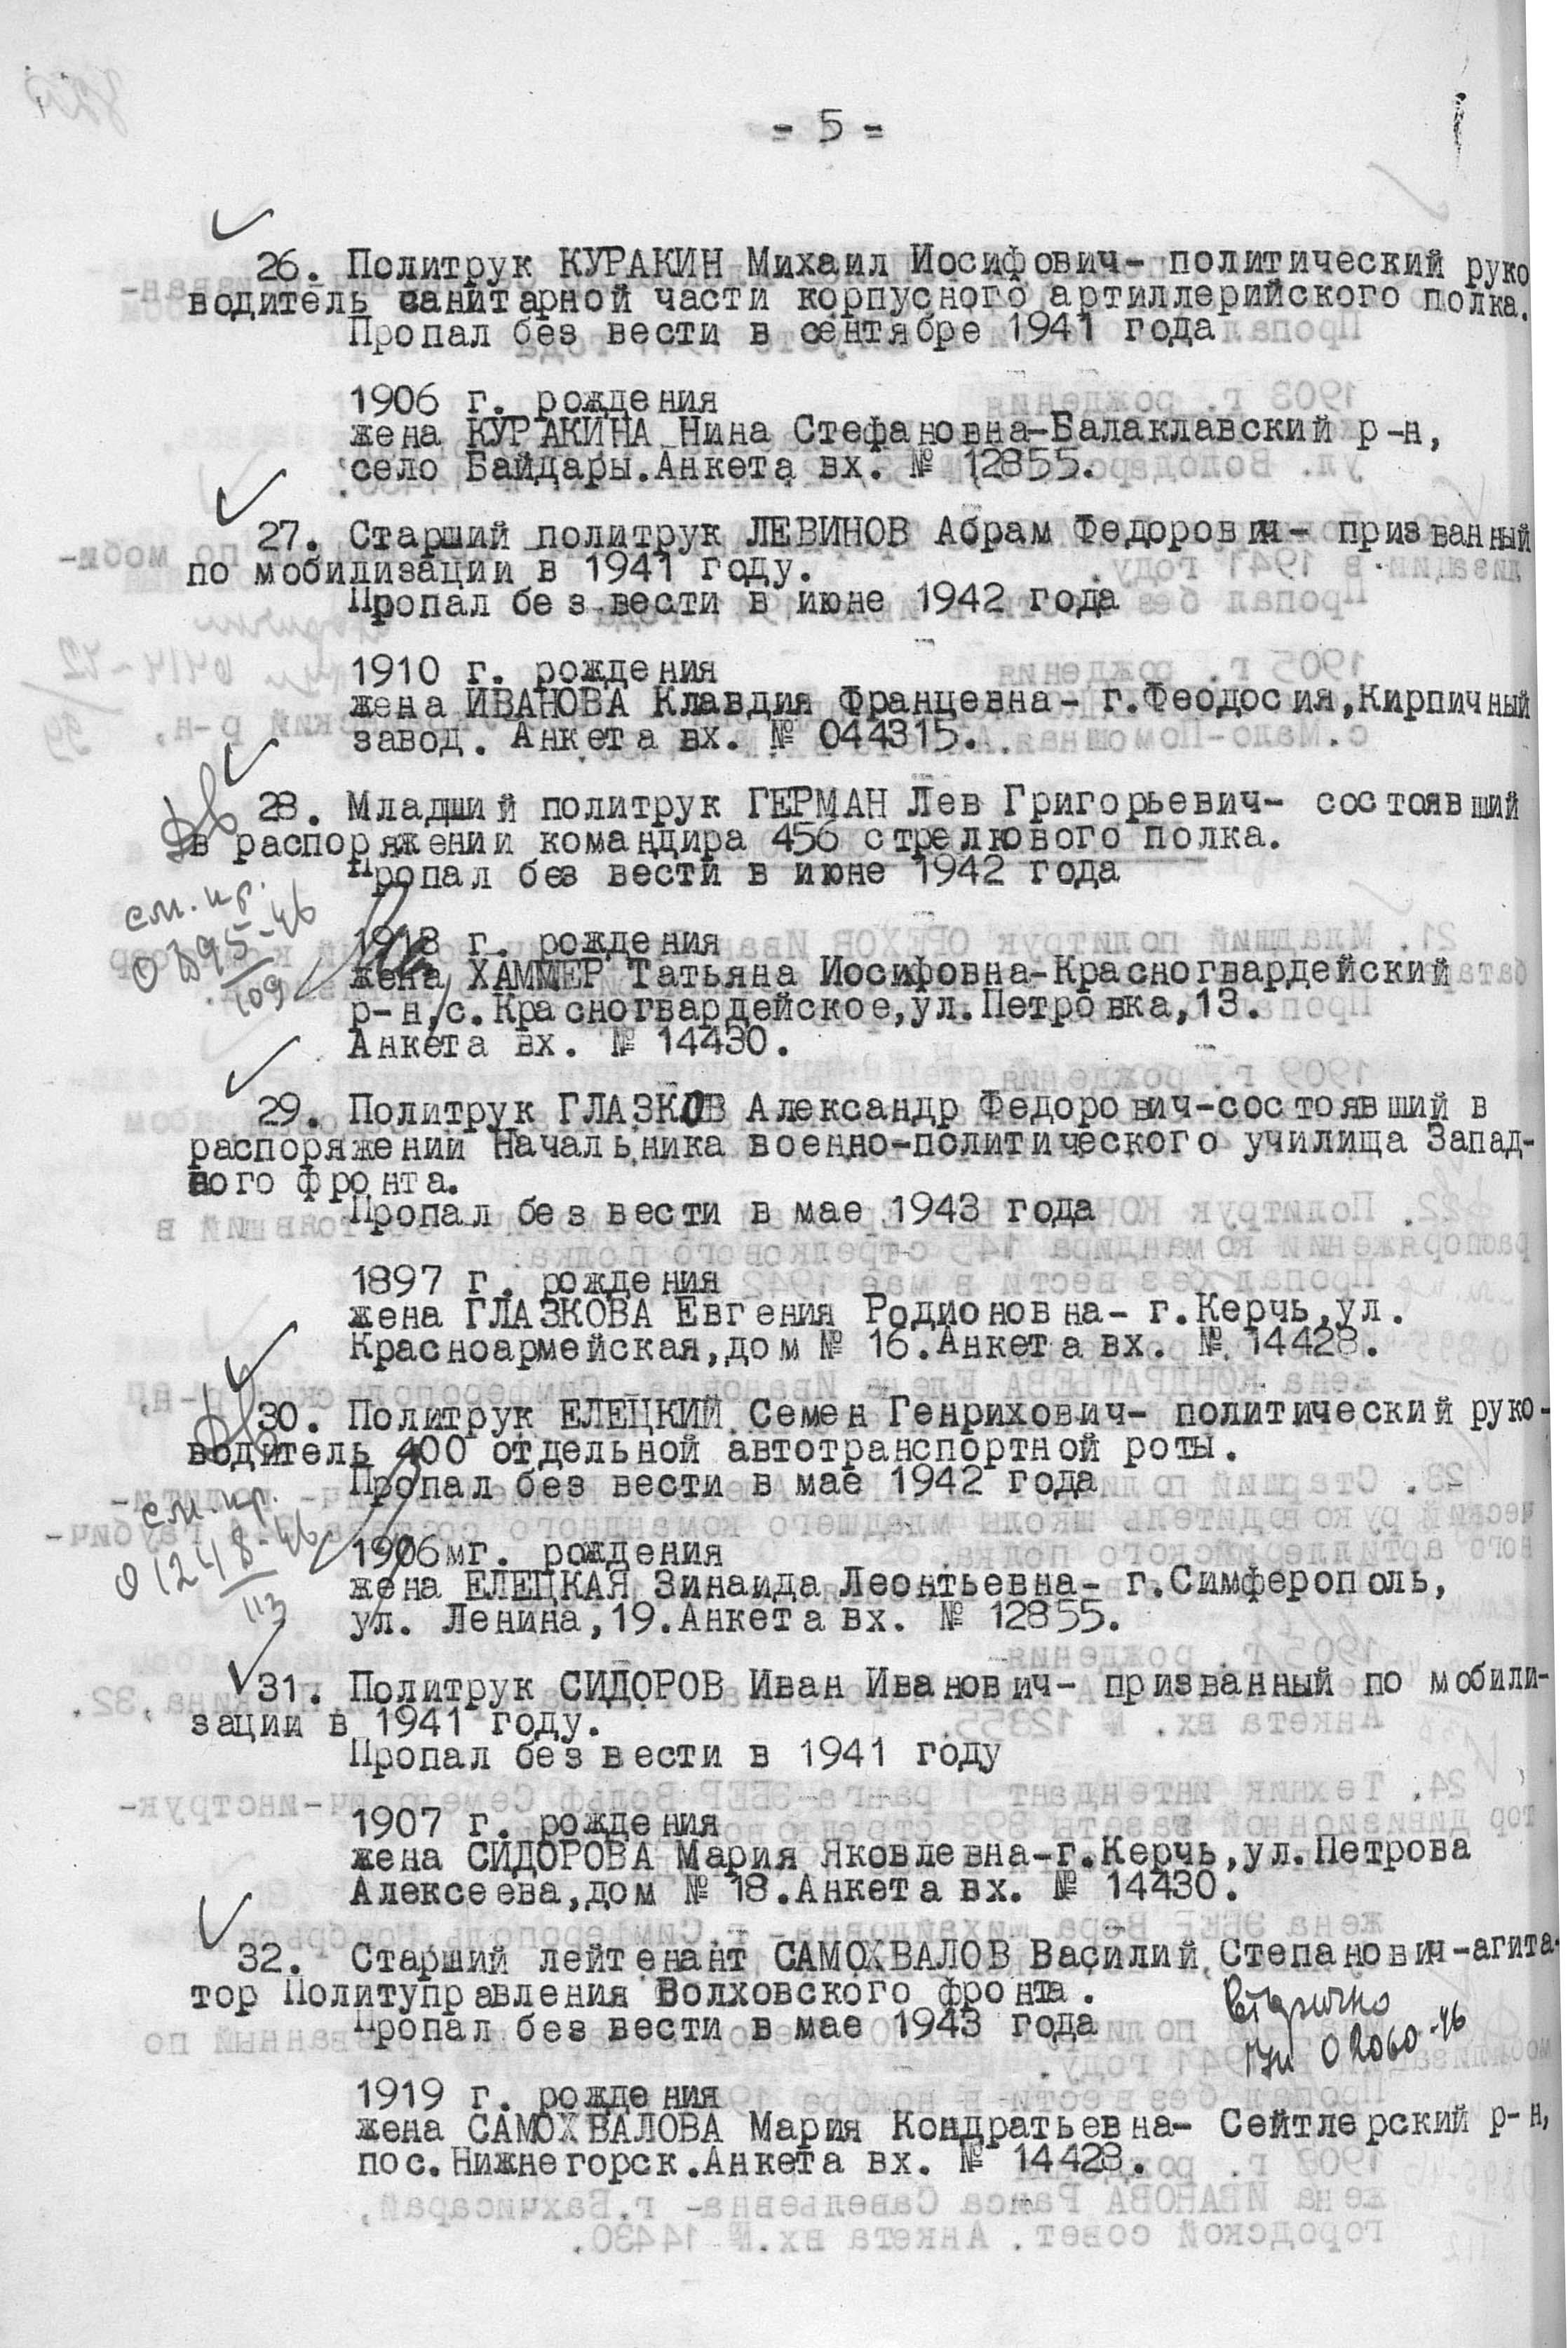 - 5 -
26. Политрук КУРАКИН Михаил Иосифович- политический руко
водитель санитарной части корпусного артиллерийского полка.
Пропал без вести в сентябре 1941 года
1906 г. рождения
жена КУРАКИНА Нина Стефановна-Балаклавский р-н,
село Байдары.Анкета вх. № 12855.
27. Старший политрук ЛЕВИНОВ Абрам Федорович- призванный
по мобилизации в 1941 году.
Пропал без вести в июне 1942 года
1910 г. рождения
жена ИВАНОВА Клавдия Францевна- г.Феодосия,Кирпичный
завод. Анкета вх. № 044315.
28. Младший политрук ГЕРМАН Лев Григорьевич- состоявший
в распоряжении командира 456 стрелкового полка.
Пропал без вести в июне 1942 года
см. пр.
0895-46
109
1918 г. рождения
жена ХАММЕР Татьяна Иосифовна-Красногвардейский
р-н,с.Красногвардейское,ул.Петровка,13.
Анкета вх. № 14430.
29. Политрук ГЛАЗКОВ Александр Федорович-состоявший в
распоряжении Начальника военно-политического училища Запад-
ного фронта.
Пропал без вести в мае 1943 года
1897 г. рождения
жена ГЛАЗКОВА Евгения Родионовна- г.Керчь,ул.
Красноармейская,дом № 16.Анкета вх. № 14428.
30. Политрук ЕЛЕЦКИЙ Семен Генрихович- политический руко-
водитель 400 отдельной автотранспортной роты.
Пропал без вести в мае 1942 года
см. пр.
01248-46
113
1906мг. рождения
жена ЕЛЕЦКАЯ Зинаида Леонтьевна- г.Симферополь,
ул. Ленина,19.Анкета вх. № 12855.
31. Политрук СИДОРОВ Иван Иванович- призванный по мобили-
зации в 1941 году.
Пропал без вести в 1941 году
1907 г. рождения
жена СИДОРОВА Мария Яковлевна-г.Керчь,ул.Петрова
Алексеева,дом № 18.Анкета вх. № 14430.
32. Старший лейтенант САМОХВАЛОВ Василий Степанович-агита-
тор Политуправления Волховского фронта.
Пропал без вести в мае 1943 года
Вторично
02060-46
1919 г. рождения
жена САМОХВАЛОВА Мария Кондратьевна- Сейтлерский р-н,
пос.Нижнегорск.Анкета вх. № 14428.